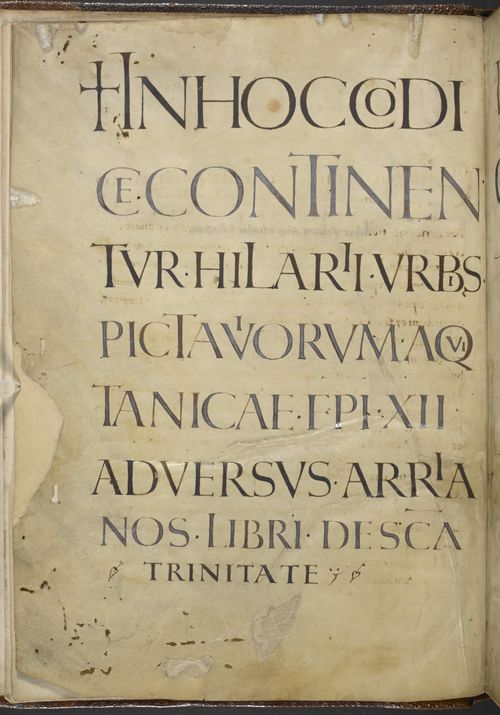 ✝IN HOC CODI
CE · CONTINEN
TVR · HILARII · VRBIS ·
PICTAVIORVM · AQVI
TANICAE · EPI · XII ·
ADVERSVS · ARRIA
NOS · LIBRI · DE SC̄A
TRINITATE